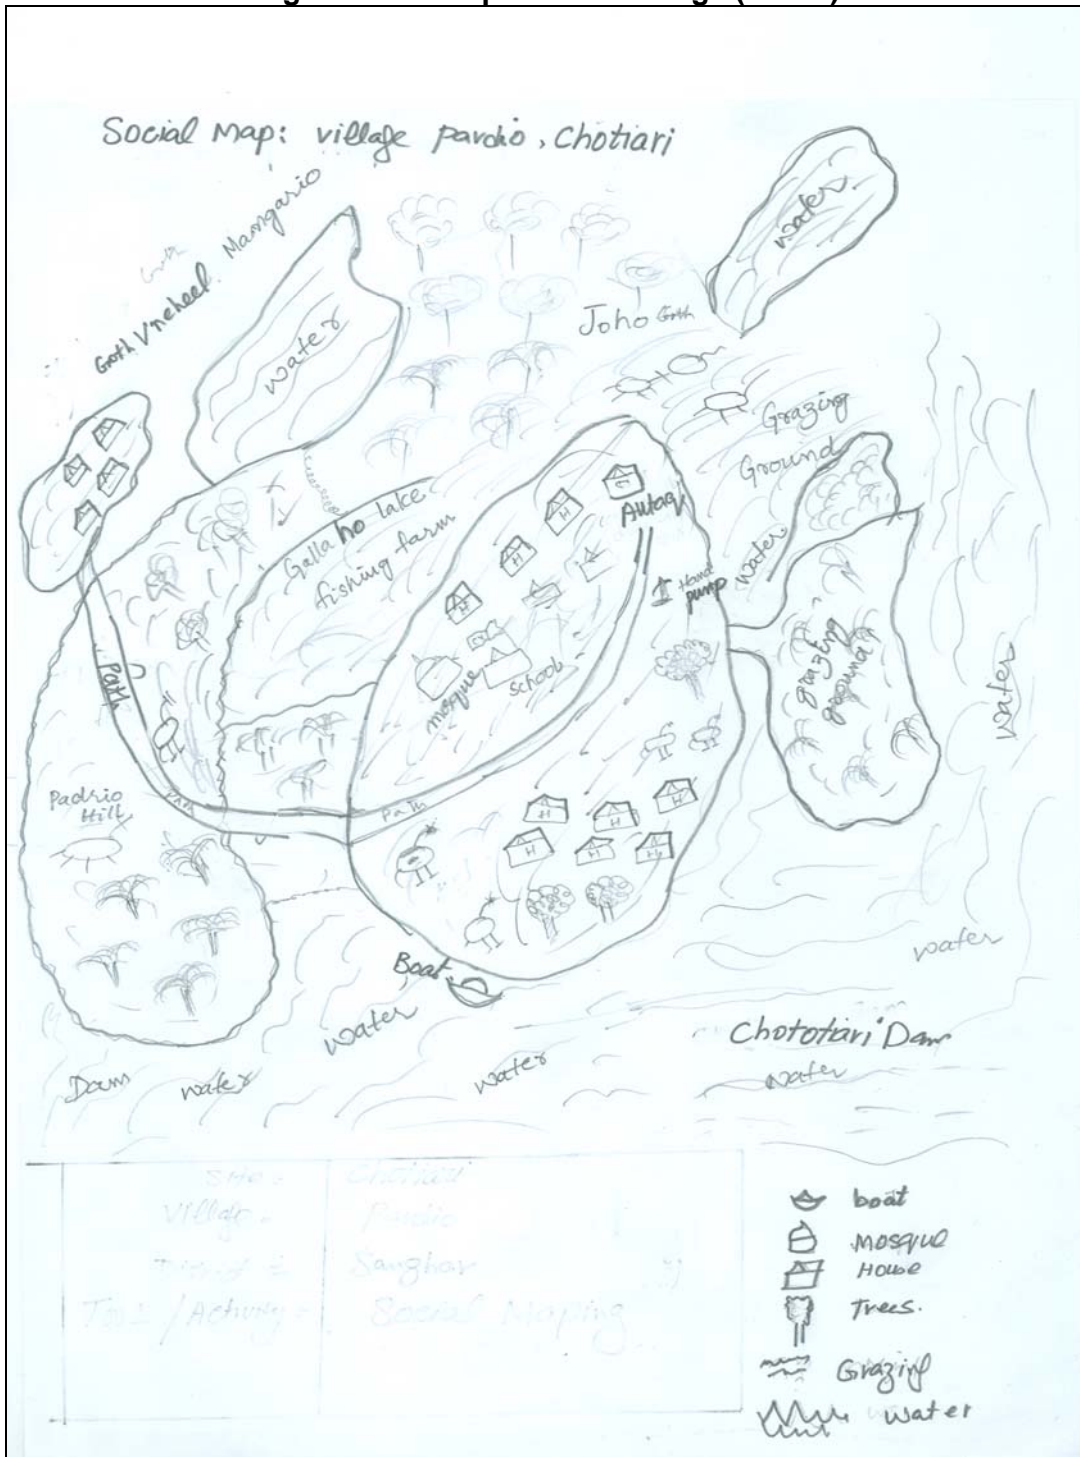 Social Map: village Pardio, Chotiari
Goth Vneheel Mamgario
water
water
Joho Goth
Grazing
Ground
Gallaho lake
fishing farm
Autaqi
Hand
pump
water
grazing
ground
mosque
school
Path
Path
Path
Padrio
Hill
water
water
Boat
water
water
Dam
water
Chototiari Dam
water
Site = Chotiari
Village = Pardio
Sanghar
Tool / Activity = Social Maping
boat
Mosque
House
Trees.
Grazing
water